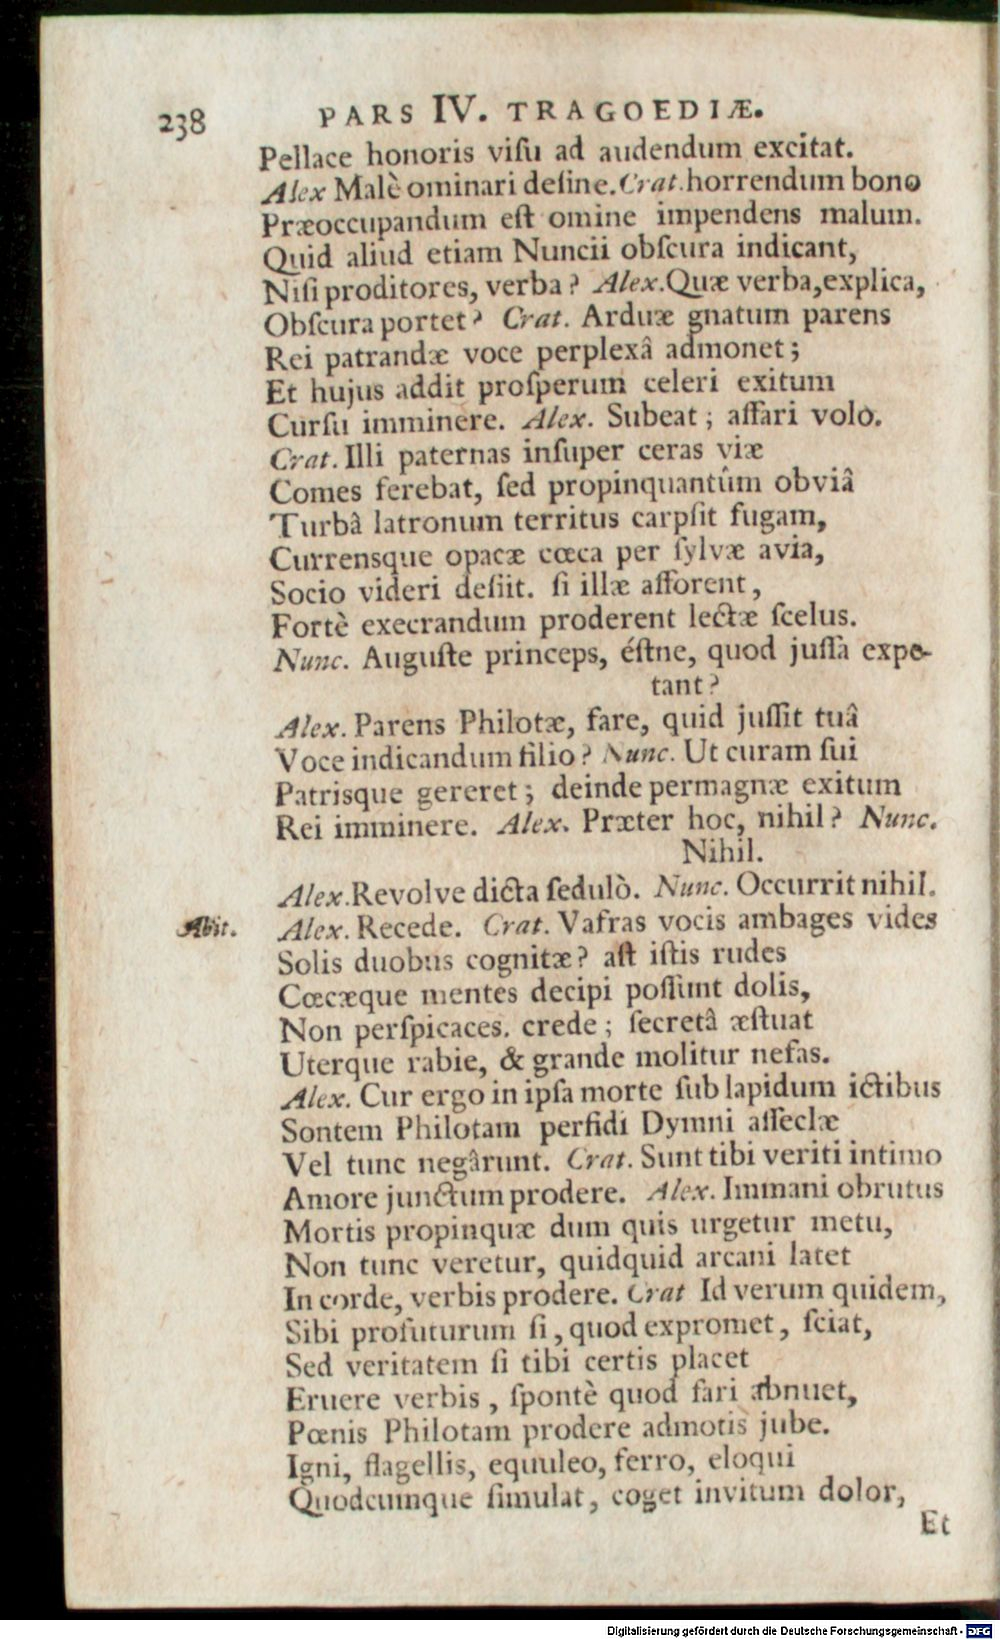 238 PARS IV. TRAGOEDIÆ.
Pellace honoris viſu ad audendum excitat.
Alex Malè ominari deſine. Crat. horrendum bono
Præoccupandum eſt omine impendens malum.
Quid aliud etiam Nuncii obſcura indicant,
Niſi proditores, verba? Alex. Quæ verba, explica,
Obſcura portet? Crat. Arduæ gnatum parens
Rei patrandæ voce perplexâ admonet;
Et hujus addit proſperum celeri exitum
Curſu imminere. Alex. Subeat; affari volo.
Crat. Illi paternas inſuper ceras viæ
Comes ferebat, ſed propinquantûm obviâ
Turbâ latronum territus carpſit fugam,
Currensque opacæ cœca per ſylvæ avia,
Socio videri deſiit. ſi illæ afforent,
Fortè execrandum proderent lectæ ſcelus.
Nunc. Auguſte princeps, éſtne, quod juſſa expe-
tant?
Alex. Parens Philotæ, fare, quid juſſit tuâ
Voce indicandum filio? Nunc. Ut curam ſui
Patrisque gereret; deinde permagnæ exitum
Rei imminere. Alex. Præter hoc, nihil? Nunc.
Nihil.
Alex. Revolve dicta ſedulò. Nunc. Occurrit nihil.
Abit. Alex. Recede. Crat. Vafras vocis ambages vides
Solis duobus cognitæ? aſt iſtis rudes
Cœcæque mentes decipi poſſunt dolis,
Non perſpicaces. crede; ſecretâ æſtuat
Uterque rabie, & grande molitur nefas.
Alex. Cur ergo in ipſa morte ſub lapidum ictibus
Sontem Philotam perfidi Dymni aſſeclæ
Vel tunc negârunt. Crat. Sunt tibi veriti intimo
Amore junctum prodere. Alex. Immani obrutus
Mortis propinquæ dum quis urgetur metu,
Non tunc veretur, quidquid arcani latet
In corde, verbis prodere. Crat Id verum quidem,
Sibi profuturum ſi, quod expromet, ſciat,
Sed veritatem ſi tibi certis placet
Eruere verbis, ſpontè quod fari abnuet,
Pœnis Philotam prodere admotis jube.
Igni, flagellis, equuleo, ferro, eloqui
Quodcumque ſimulat, coget invitum dolor,
Et
Digitalisierung gefördert durch die Deutsche Forschungsgemeinschaft - DFG